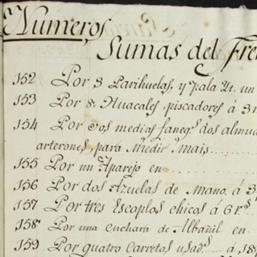 Numeros
Sumas del Fre
152 Por 8 Parihuelas, y pala de un
153 Por 8 Huacales piscadores á 3 r
154 Por dos medias faneg.s dos almu
arterones para Medir Mais
155 Por un Aparejo en
156 Por dos Azuelas de Mano, á 3
157 Por tres Escoplos chicos á 6 r.s
158 Por una cuchara de Albañil en
159 Por quatro Carretas usad.s á 18